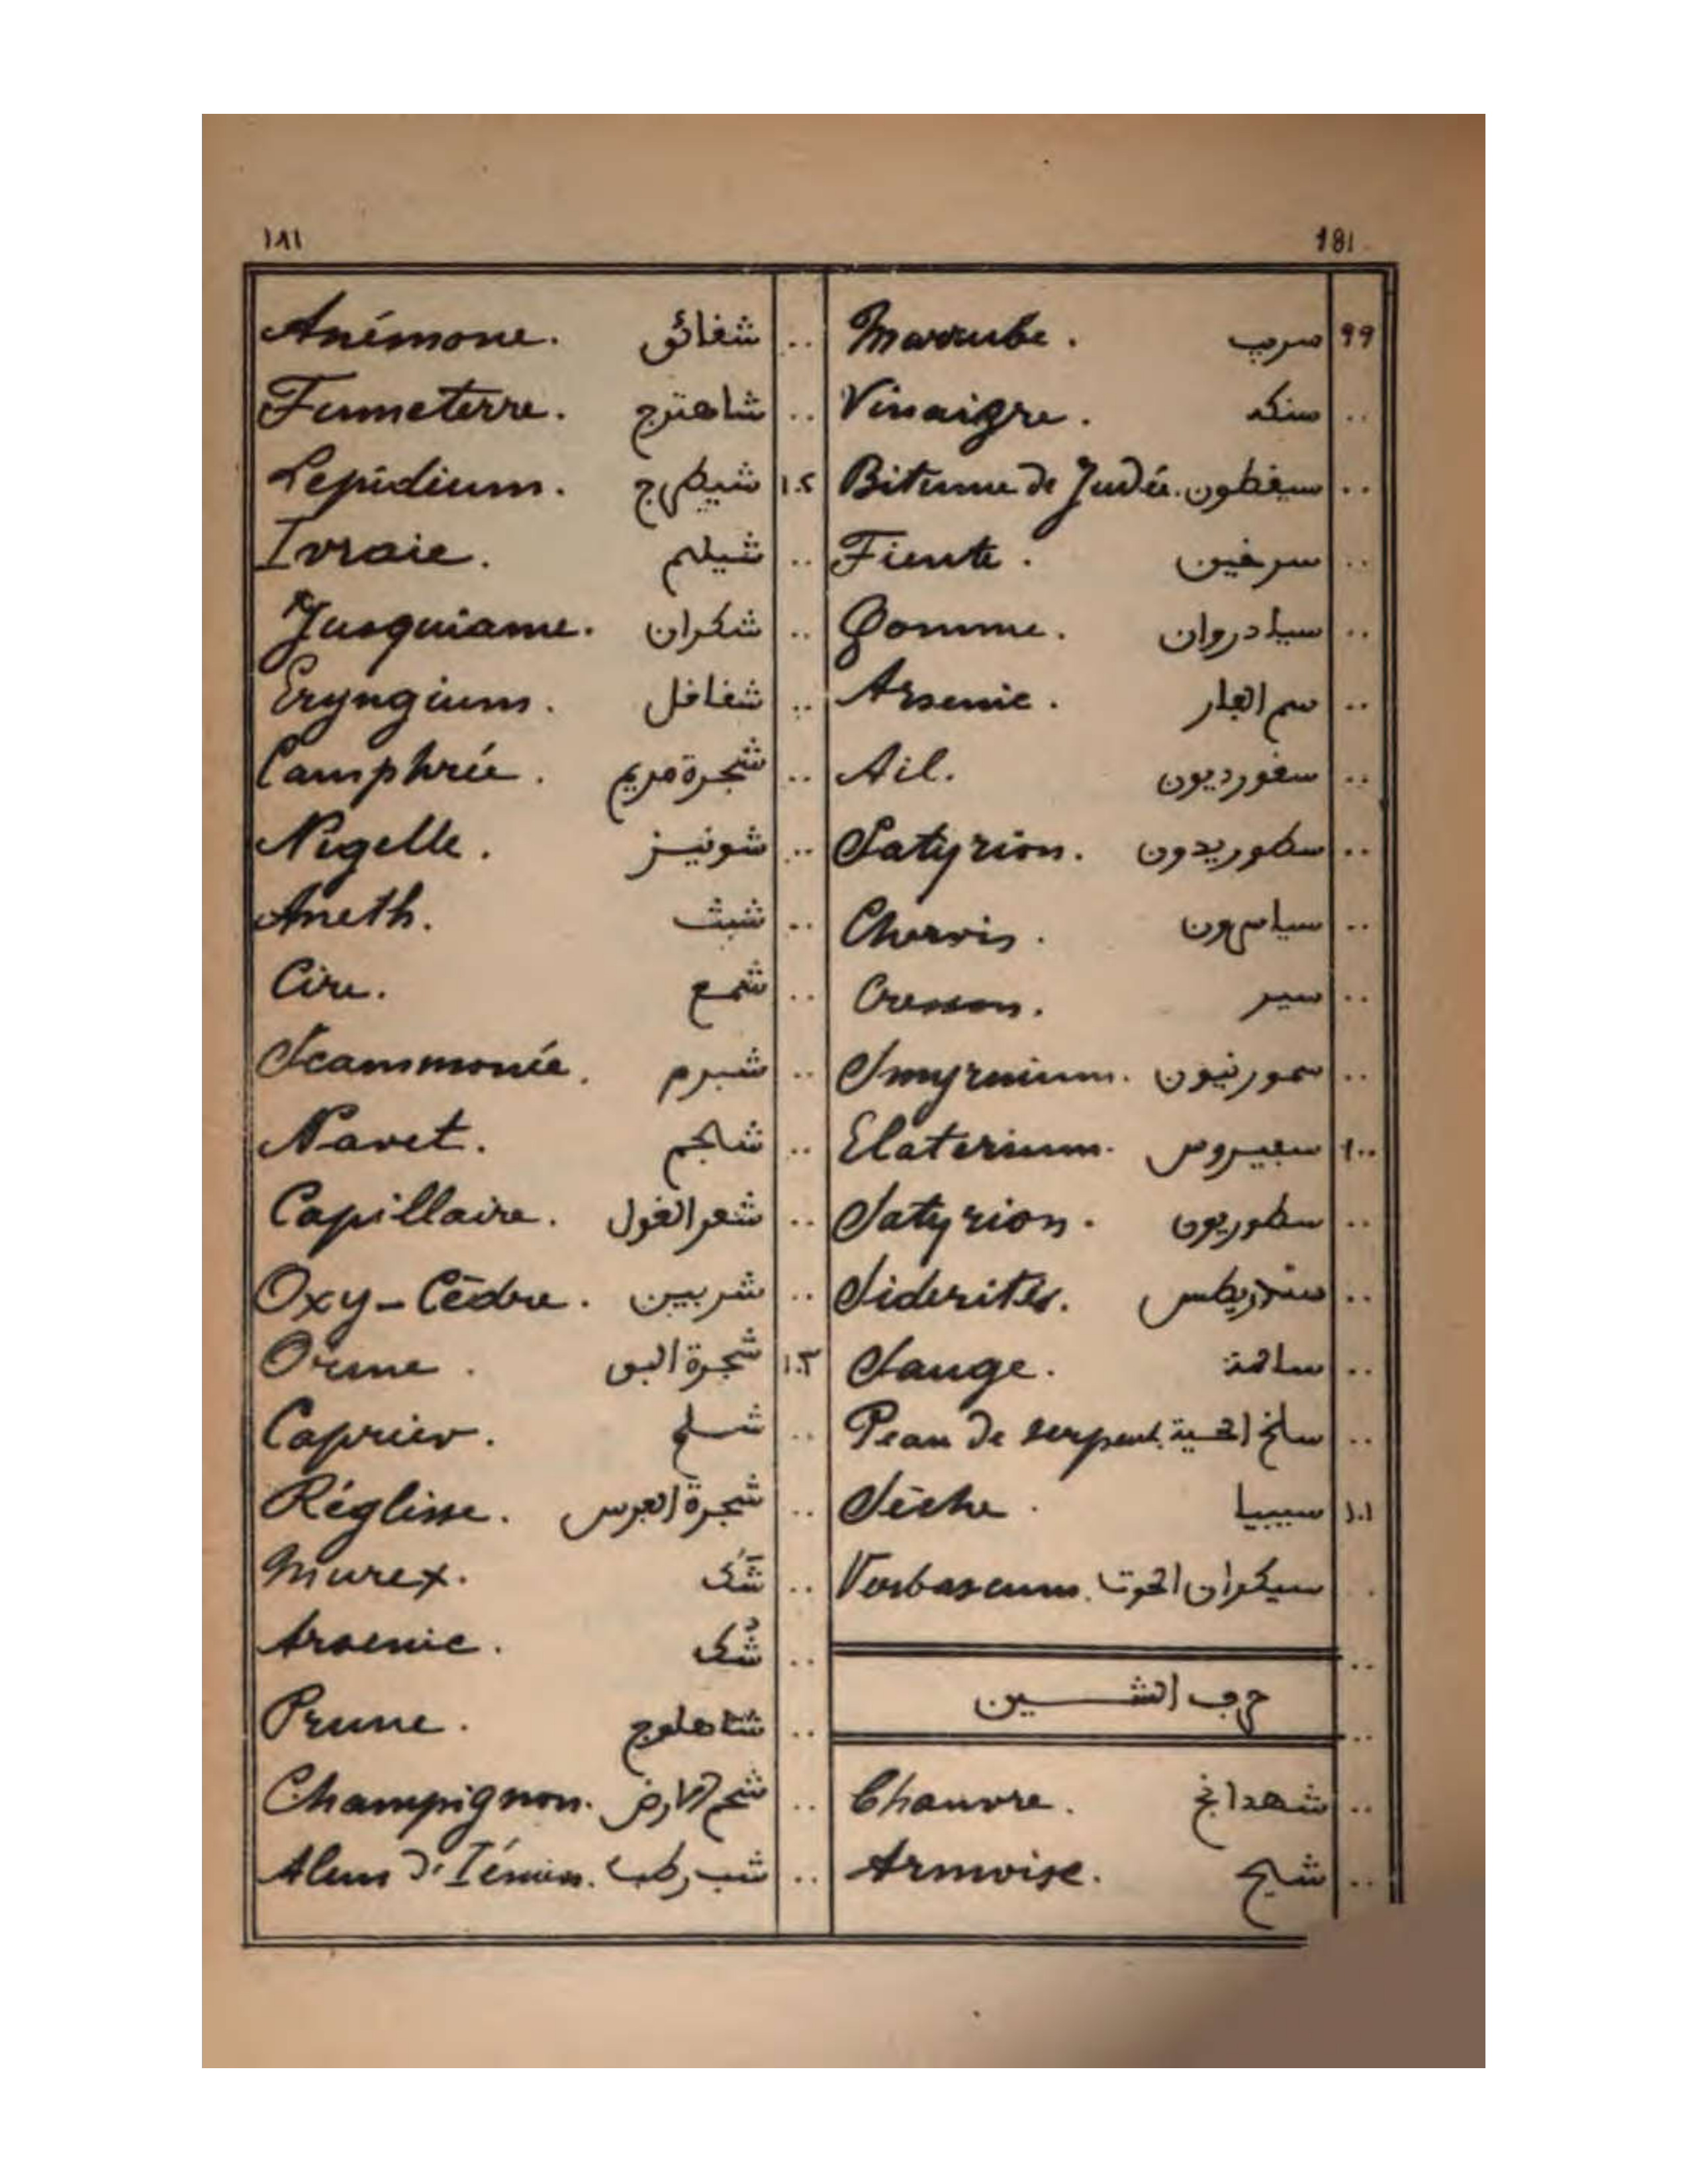 ١٨١ 181
٩٩ سرب Marrube.
.. سنكه Vinaigre.
.. سيفطون Bitume de Judée.
.. سرخين Fiente.
.. سيادروان Gomme.
.. سم الفار Arsenic.
.. سفورديون Ail.
.. سطوريدون Satyrion.
.. Chervis.
.. سير Cresson.
.. سمورنيون Smyrnium.
١٠٠ سبيروس Elaterium.
.. سطوريون Satyrion.
.. سندريطس Sideritis.
.. Sauge.
.. سلخ الحية Peau de serpent.
١٠١ سيبيا Sèche.
.. سيكران الحوت Verbascum.
..
حرف الشين
..
.. شهدانج Chanvre.
.. شيح Armoise.
.. شقائق Anémone.
.. شاهترج Fumeterre.
١٠٢ شيطرج Lepidium.
.. شيلم Ivraie.
.. شكران Jusquiame.
.. شقاقل Eryngium.
.. شجرة مريم Camphrée.
.. شونيز Nigelle.
.. شبث Aneth.
.. شمع Cire.
.. شبرم Scammonée.
.. شلجم Navet.
.. شعر الغول Capillaire.
.. شربين Oxy-Cèdre.
١٠٣ شجرة البق Orme.
.. شلح Caprier.
.. شجرة الفرس Réglisse.
.. شَك Murex.
.. شُك Arsenic.
.. شاهلوج Prune.
.. شحم الارض Champignon.
.. شب رطب Alun d'Iémen.